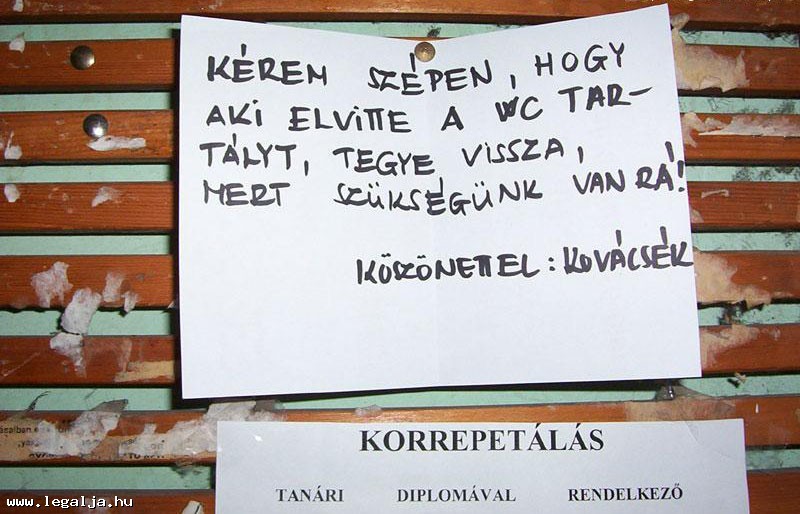 KÉREM SZÉPEN, HOGY
AKI ELVITTE A WC TAR-
TÁLYT, TEGYE VISSZA,
MERT SZÜKSÉGÜNK VAN RÁ!
KÖSZÖNETTEL: KOVÁCSÉK
KORREPETÁLÁS
TANÁRI DIPLOMÁVAL RENDELKEZŐ
www.legalja.hu